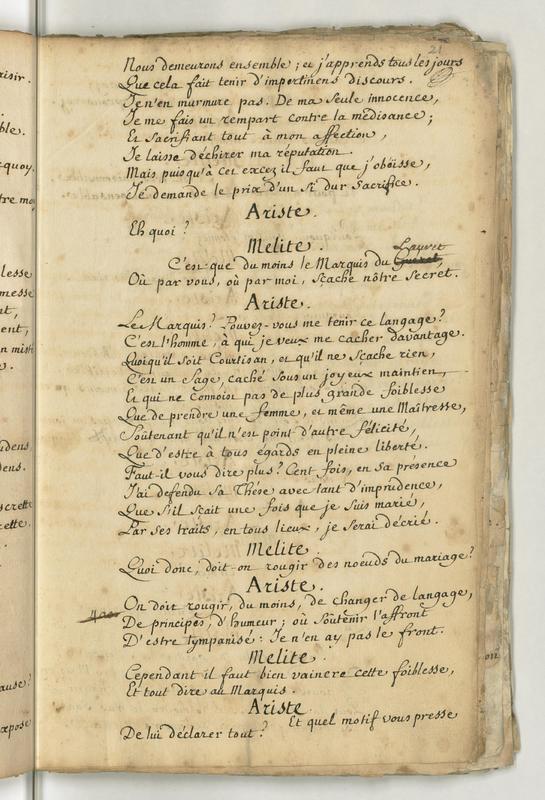 21
Nous demeurons ensemble ; et j'apprends tous les jours
Que cela fait tenir d'impertinens discours.
Je n'en murmure pas. De ma seule innocence,
Je me fais un rempart contre la médisance ;
Et sacrifiant tout à mon affection,
Je laisse déchirer ma réputation.
Mais puisqu'à cet excez il faut que j'obéisse,
Je demande le prix d'un si dur sacrifice.
Ariste.
Eh quoi ?
Melite.
Lauret
C'est que du moins le Marquis du
Où par vous, où par moi, sçache nôtre secret.
Ariste.
Le Marquis ? Pouvez-vous me tenir ce langage ?
C'est l'homme, à qui je veux me cacher davantage.
Quoiqu'il soit Courtisan, et qu'il ne sçache rien,
C'est un Sage, caché sous un joyeux maintien,
Et qui ne connoist pas de plus grande foiblesse
Que de prendre une femme, et même une Maîtresse,
Soutenant qu'il n'est point d'autre félicité,
Que d'estre à tous égards en pleine liberté.
Faut-il vous dire plus ? Cent fois, en sa présence
J'ai defendu sa Thése avec tant d'imprudence,
Que s'il sçait une fois que je suis marié,
Par ses traits, en tous lieux, je serai décrié.
Melite.
Quoi donc, doit-on rougir des noeuds du mariage ?
Ariste.
On doit rougir, du moins, de changer de langage,
De principes, d'humeur ; où soûtenir l'affront
D'estre tympanisé : Je n'en ay pas le front.
Melite.
Cependant il faut bien vaincre cette foiblesse,
Et tout dire au Marquis.
Ariste
Et quel motif vous presse
De lui déclarer tout ?